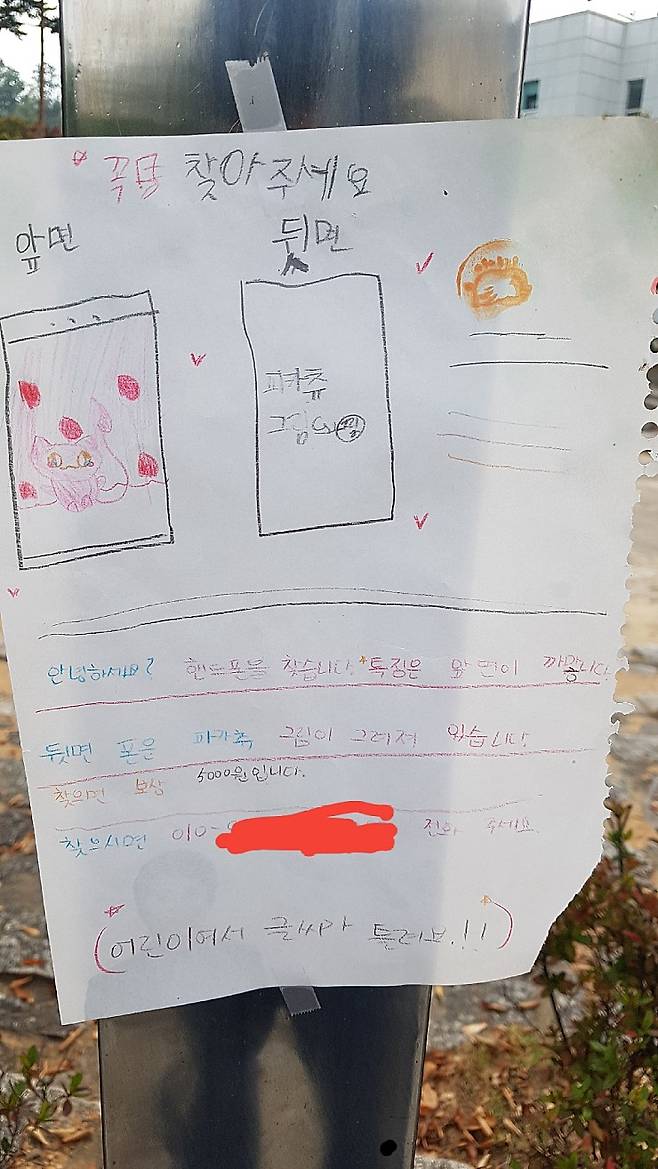 꼭좀 찾아주세요
앞면 뒷면
피카츄
그림
안녕하세요? 핸드폰을 찾습니다. 특징은 앞면이 까맣습니다.
뒷면 폰은 피카츄 그림이 그려져 있습니다.
찾으면 보상 5000원입니다.
찾으시면 010- 전화 주세요.
(어린이여서 글씨가 틀려보.!!)